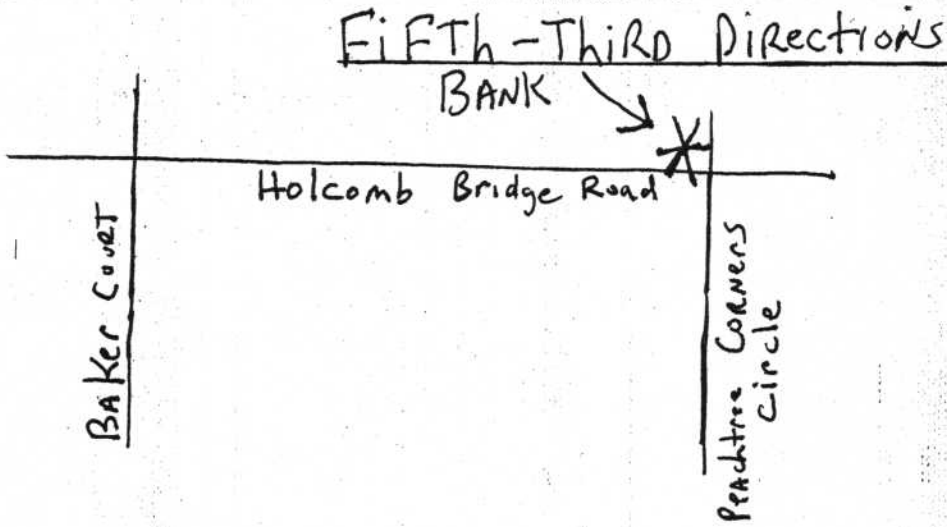 FiFTh-ThiRD Directions
BANK
Holcomb Bridge Road
BAKer CouRT
Peachtree CoRNeRs
Circle